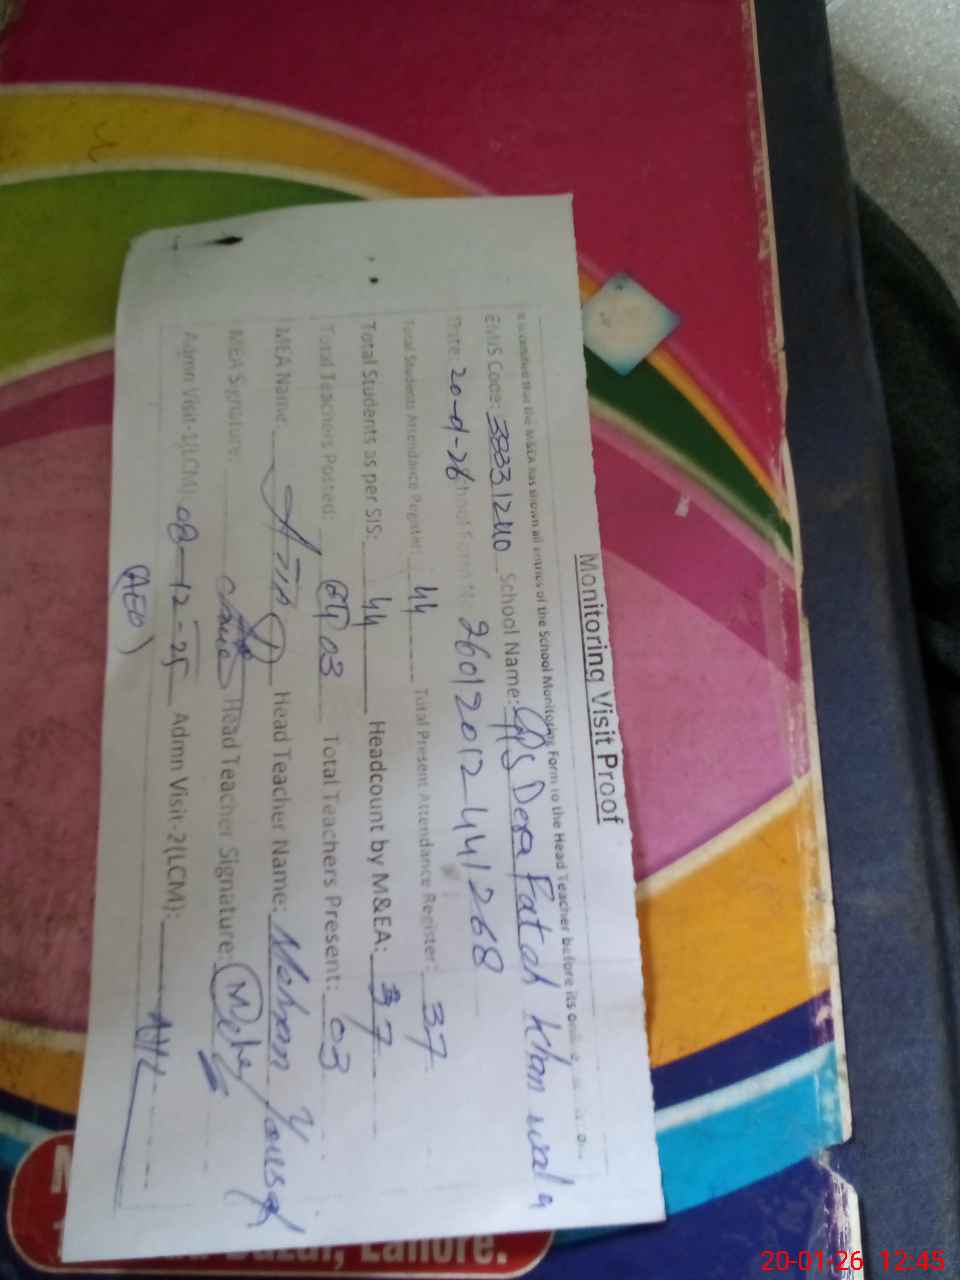 Monitoring Visit Proof
It is certified that the M&EA has shown all entries of the School Monitoring Form to the Head Teacher before its
EMIS Code: 38331240 School Name: GPS Dera Fatah Khan wala
Date: 20-01-26 School Form No: 26012012-441268
Total Students Attendance Register: 44 Total Present Attendance Register: 37
Total Students as per SIS: 44 Headcount by M&EA: 37
Total Teachers Posted: 03 Total Teachers Present: 03
MEA Name: Head Teacher Name: Mehran Yousaf
MEA Signature: Head Teacher Signature:
Admn Visit-1(LCM): 08-12-25 Admn Visit-2(LCM):
(AEO)
Lahore.
20-01-26 12:45